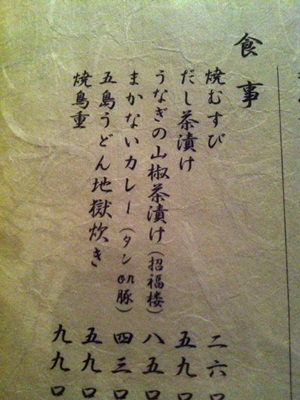 食事
焼むすび 二六〇
だし茶漬け 五九〇
うなぎの山椒茶漬け(招福楼) 八五〇
まかないカレー(タンor豚) 四三〇
五島うどん地獄炊き 五九〇
焼鳥重 九九〇